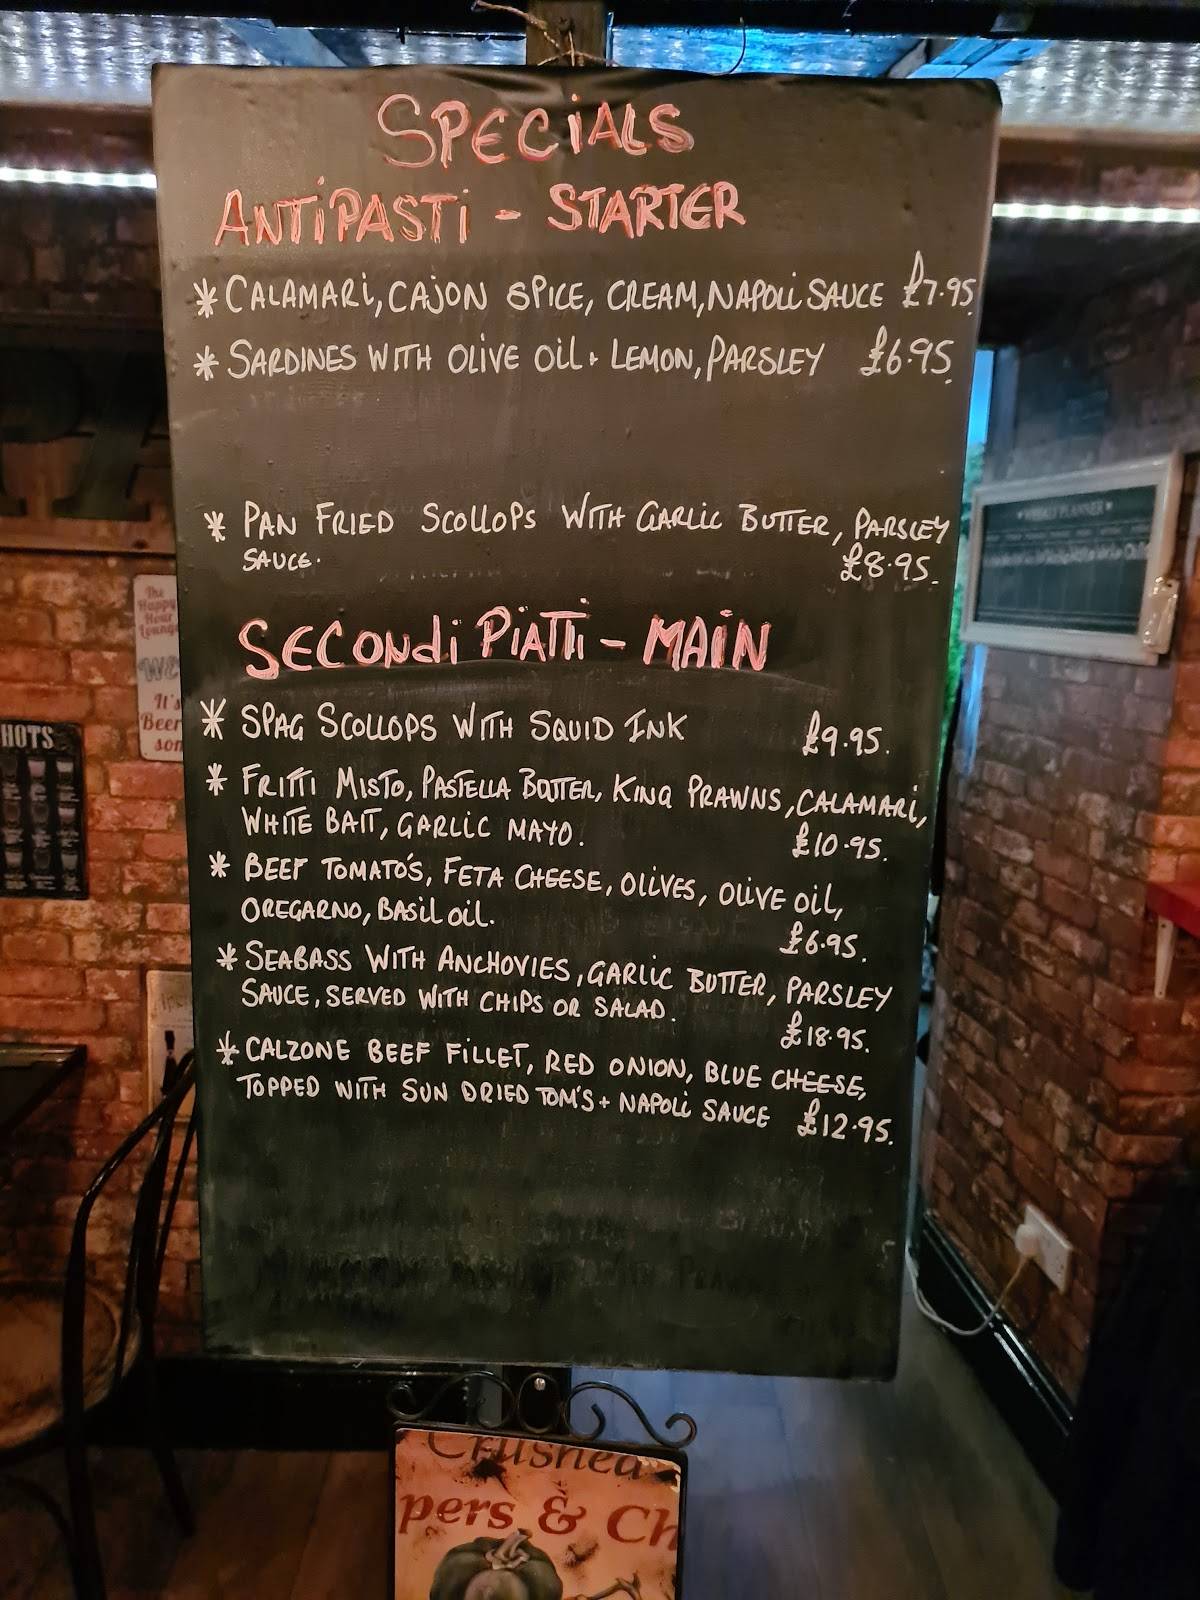 SPECIALS
ANTIPASTI - STARTER
* CALAMARI, CAJON SPICE, CREAM, NAPOLI SAUCE £7.95
* SARDINES WITH OLIVE OIL + LEMON, PARSLEY £6.95.
* PAN FRIED SCOLLOPS WITH GARLIC BUTTER, PARSLEY
SAUCE. £8.95.
SECONDI PIATTI - MAIN
* SPAG SCOLLOPS WITH SQUID INK £9.95.
* FRITTI MISTO, PASTELLA BATTER, KING PRAWNS, CALAMARI,
WHITE BAIT, GARLIC MAYO. £10.95.
* BEEF TOMATO'S, FETA CHEESE, OLIVES, OLIVE OIL,
OREGARNO, BASIL OIL. £6.95.
* SEABASS WITH ANCHOVIES, GARLIC BUTTER, PARSLEY
SAUCE, SERVED WITH CHIPS OR SALAD. £18.95.
* CALZONE BEEF FILLET, RED ONION, BLUE CHEESE,
TOPPED WITH SUN DRIED TOM'S + NAPOLI SAUCE £12.95.
WEEKLY PLANNER
The
Happy
Hour
Lounge
WE
It's
Beer
son
HOTS
Crushed
pers & Ch